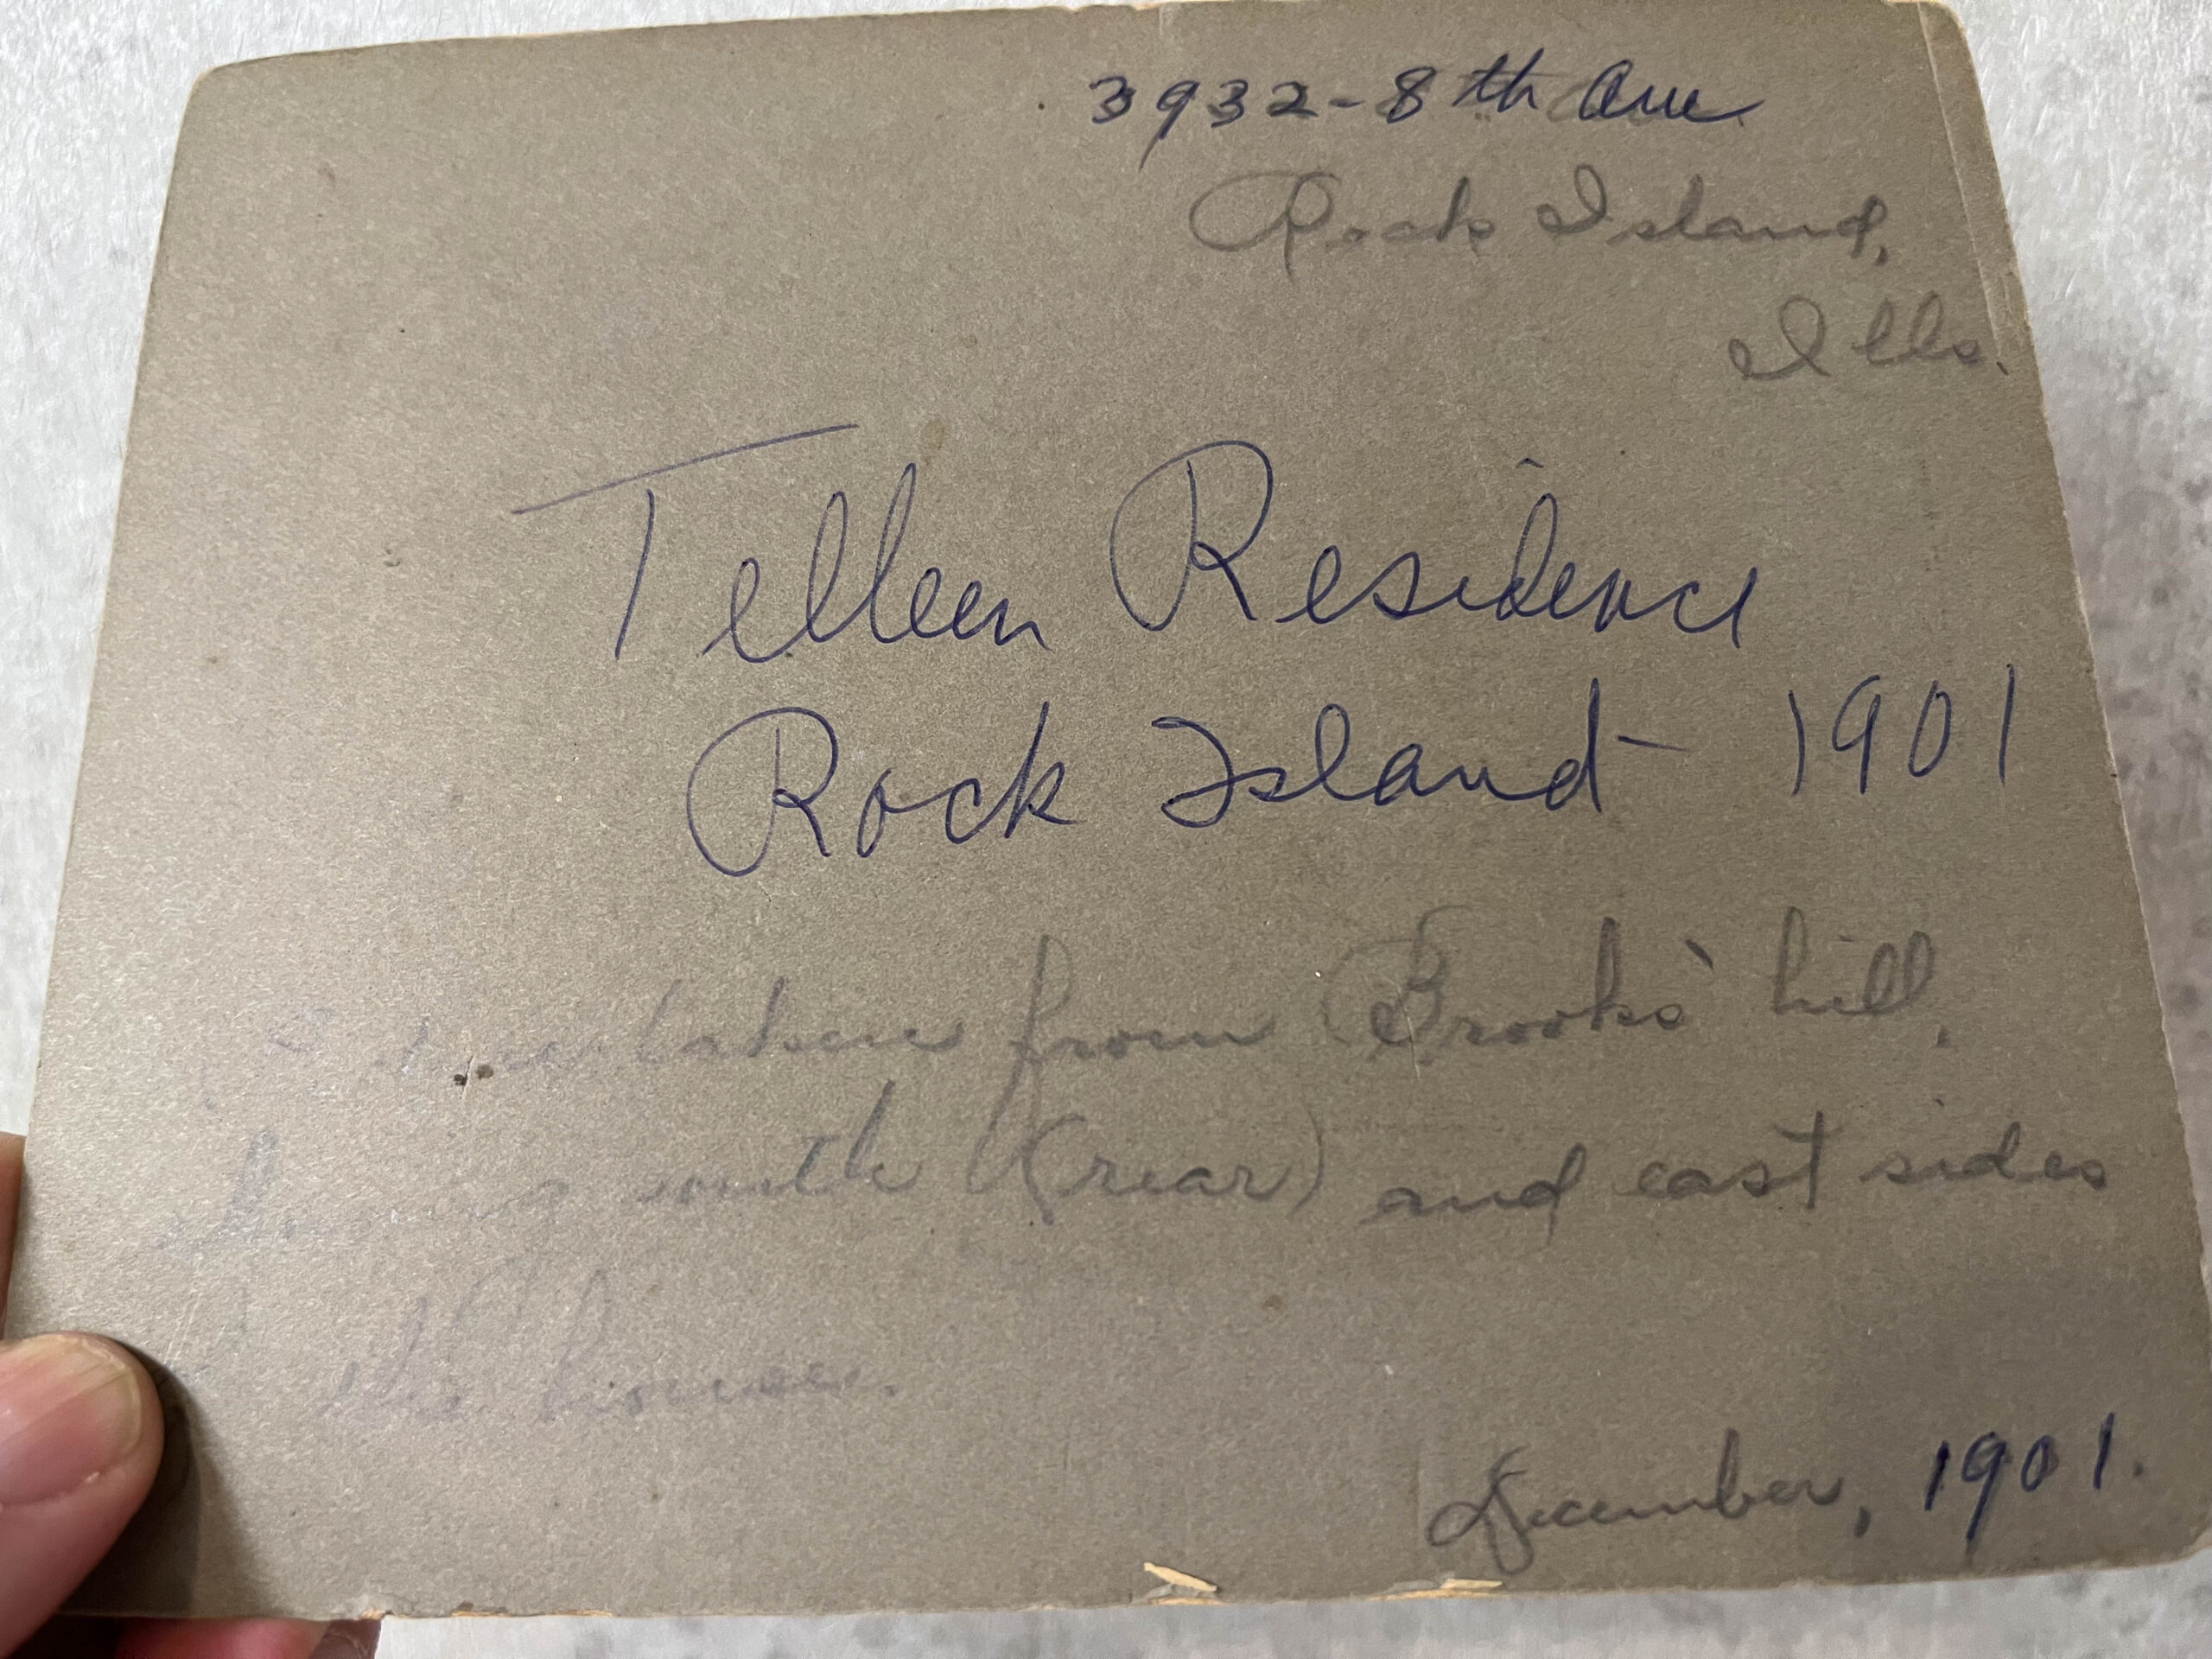 3932-8th Ave.
Rock Island,
Ills.
Telleen Residence
Rock Island - 1901
taken from Brooks' hill,
south (rear) and east sides
the house.
December, 1901.